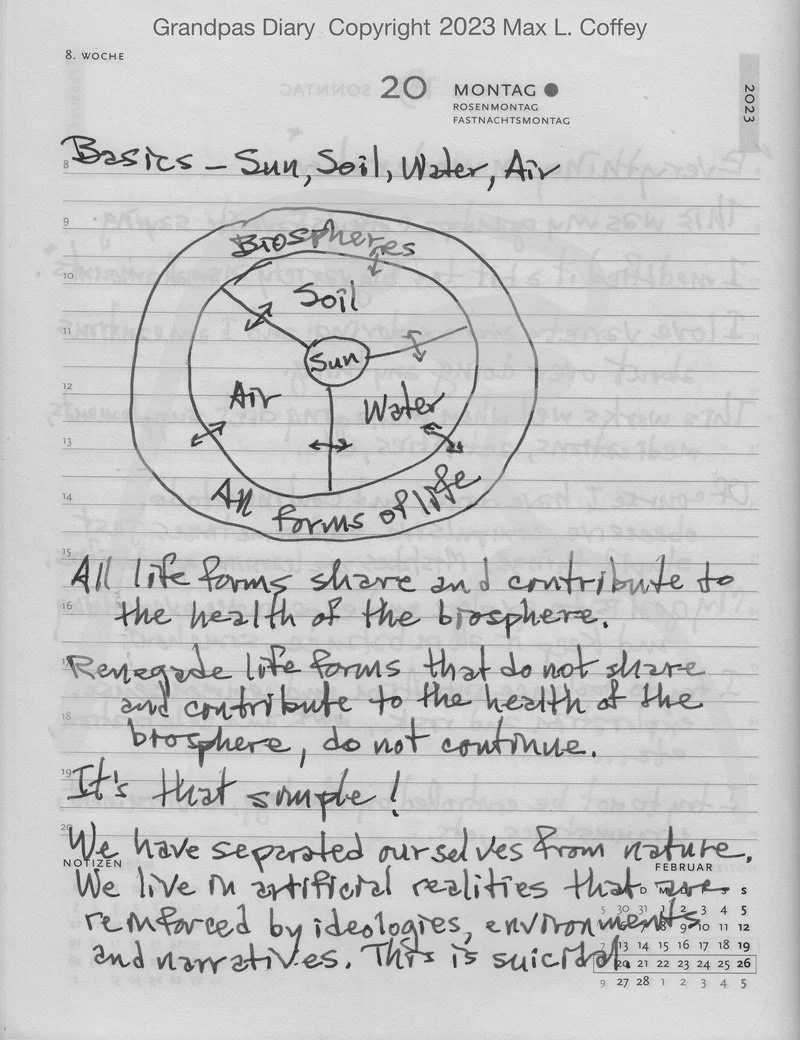 Grandpas Diary Copyright 2023 Max L. Coffey
8. WOCHE
20 MONTAG
ROSENMONTAG
FASTNACHTSMONTAG
2023
Basics – Sun, Soil, Water, Air
8
9
Biospheres
10
Soil
11
Sun
12
Air
Water
13
14
All forms of life
15
All life forms share and contribute to
16
the health of the biosphere.
17
Renegade life forms that do not share
and contribute to the health of the
18
biosphere, do not continue.
19
It's that simple!
20
We have separated ourselves from nature.
NOTIZEN
FEBRUAR
We live in artificial realities that are
reinforced by ideologies, environments
and narratives. This is suicidal.
D M D F S S
5 30 31 1 2 3 4 5
8 9 10 11 12
7 13 14 15 16 17 18 19
20 21 22 23 24 25 26
9 27 28 1 2 3 4 5